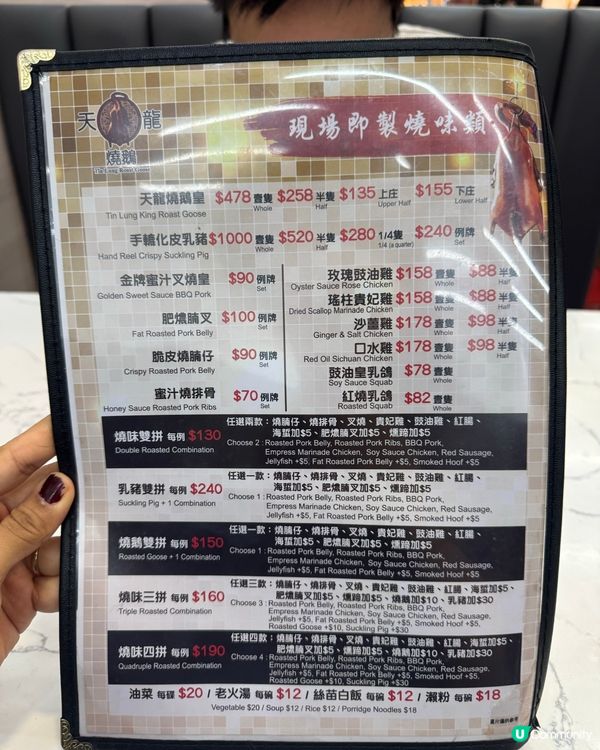 天龍
燒鵝
Tin Lung Roast Goose
現場即製燒味類
天龍燒鵝皇 $478 壹隻 $258 半隻 $135 上庄 $155 下庄
Tin Lung King Roast Goose Whole Half Upper Half Lower Half
手轆化皮乳豬 $1000 壹隻 $520 半隻 $280 1/4隻 $240 例牌
Hand Reel Crispy Suckling Pig Whole Half 1/4 (a quarter) Set
金牌蜜汁叉燒皇 $90 例牌
Golden Sweet Sauce BBQ Pork Set
肥燶腩叉 $100 例牌
Fat Roasted Pork Belly Set
脆皮燒腩仔 $90 例牌
Crispy Roasted Pork Belly Set
蜜汁燒排骨 $70 例牌
Honey Sauce Roasted Pork Ribs Set
玫瑰豉油雞 $158 壹隻 $88 半隻
Oyster Sauce Rose Chicken Whole Half
瑤柱貴妃雞 $158 壹隻 $88 半隻
Dried Scallop Marinade Chicken Whole Half
沙薑雞 $178 壹隻 $98 半隻
Ginger & Salt Chicken Whole Half
口水雞 $178 壹隻 $98 半隻
Red Oil Sichuan Chicken Whole Half
豉油皇乳鴿 $78 壹隻
Soy Sauce Squab Whole
紅燒乳鴿 $82 壹隻
Roasted Squab Whole
燒味雙拼 每例 $130
Double Roasted Combination
任選兩款：燒腩仔、燒排骨、叉燒、貴妃雞、豉油雞、紅腸、
海蜇加$5、肥燶腩叉加$5、燻蹄加$5
Choose 2 : Roasted Pork Belly, Roasted Pork Ribs, BBQ Pork,
Empress Marinade Chicken, Soy Sauce Chicken, Red Sausage,
Jellyfish +$5, Fat Roasted Pork Belly +$5, Smoked Hoof +$5
乳豬雙拼 每例 $240
Suckling Pig + 1 Combination
任選一款：燒腩仔、燒排骨、叉燒、貴妃雞、豉油雞、紅腸、
海蜇加$5、肥燶腩叉加$5、燻蹄加$5
Choose 1 : Roasted Pork Belly, Roasted Pork Ribs, BBQ Pork,
Empress Marinade Chicken, Soy Sauce Chicken, Red Sausage,
Jellyfish +$5, Fat Roasted Pork Belly +$5, Smoked Hoof +$5
燒鵝雙拼 每例 $150
Roasted Goose + 1 Combination
任選一款：燒腩仔、燒排骨、叉燒、貴妃雞、豉油雞、紅腸、
海蜇加$5、肥燶腩叉加$5、燻蹄加$5
Choose 1 : Roasted Pork Belly, Roasted Pork Ribs, BBQ Pork,
Empress Marinade Chicken, Soy Sauce Chicken, Red Sausage,
Jellyfish +$5, Fat Roasted Pork Belly +$5, Smoked Hoof +$5
燒味三拼 每例 $160
Triple Roasted Combination
任選三款：燒腩仔、燒排骨、叉燒、貴妃雞、豉油雞、紅腸、海蜇加$5、
肥燶腩叉加$5、燻蹄加$5、燒鵝加$10、乳豬加$30
Choose 3 : Roasted Pork Belly, Roasted Pork Ribs, BBQ Pork,
Empress Marinade Chicken, Soy Sauce Chicken, Red Sausage,
Jellyfish +$5, Fat Roasted Pork Belly +$5, Smoked Hoof +$5,
Roasted Goose +$10, Suckling Pig +$30
燒味四拼 每例 $190
Quadruple Roasted Combination
任選四款：燒腩仔、燒排骨、叉燒、貴妃雞、豉油雞、紅腸、海蜇加$5、
肥燶腩叉加$5、燻蹄加$5、燒鵝加$10、乳豬加$30
Choose 4 : Roasted Pork Belly, Roasted Pork Ribs, BBQ Pork,
Empress Marinade Chicken, Soy Sauce Chicken, Red Sausage,
Jellyfish +$5, Fat Roasted Pork Belly +$5, Smoked Hoof +$5,
Roasted Goose +$10, Suckling Pig +$30
油菜 每碟 $20 / 老火湯 每碗 $12 / 絲苗白飯 每碗 $12 / 瀨粉 每碗 $18
Vegetable $20 / Soup $12 / Rice $12 / Porridge Noodles $18
圖片僅供參考
U Community